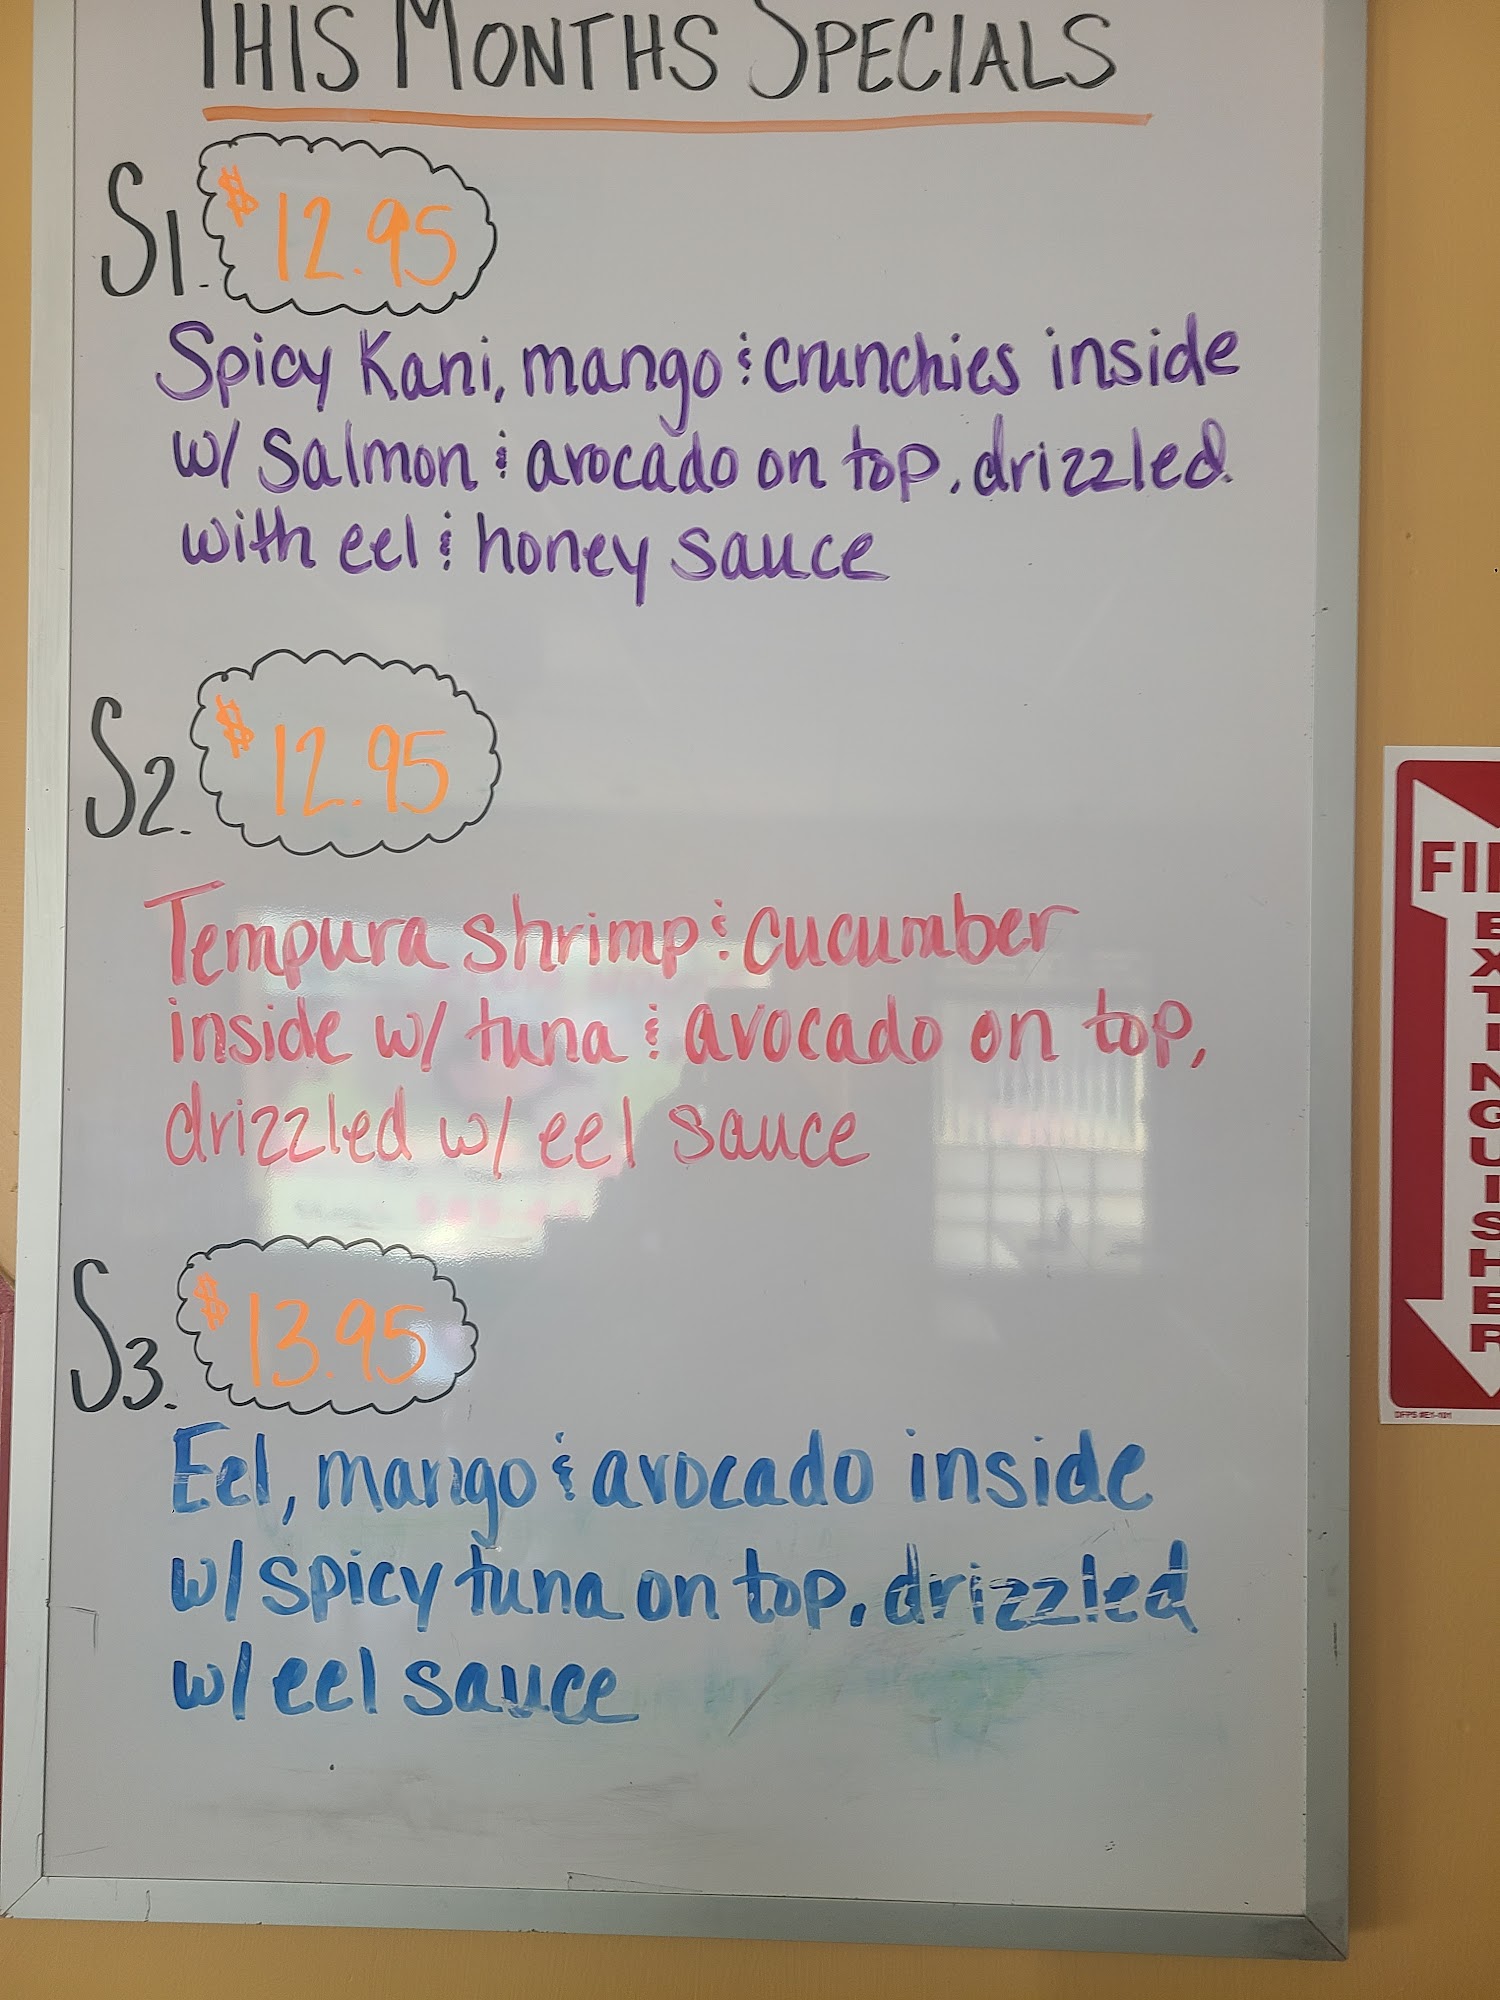 THIS MONTHS SPECIALS
S1. $12.95
Spicy Kani, mango & crunchies inside
w/ salmon & avocado on top, drizzled
with eel & honey sauce
S2. $12.95
Tempura shrimp & cucumber
inside w/ tuna & avocado on top,
drizzled w/ eel sauce
S3. $13.95
Eel, mango & avocado inside
w/ spicy tuna on top, drizzled
w/ eel sauce
EXTINGUISHER